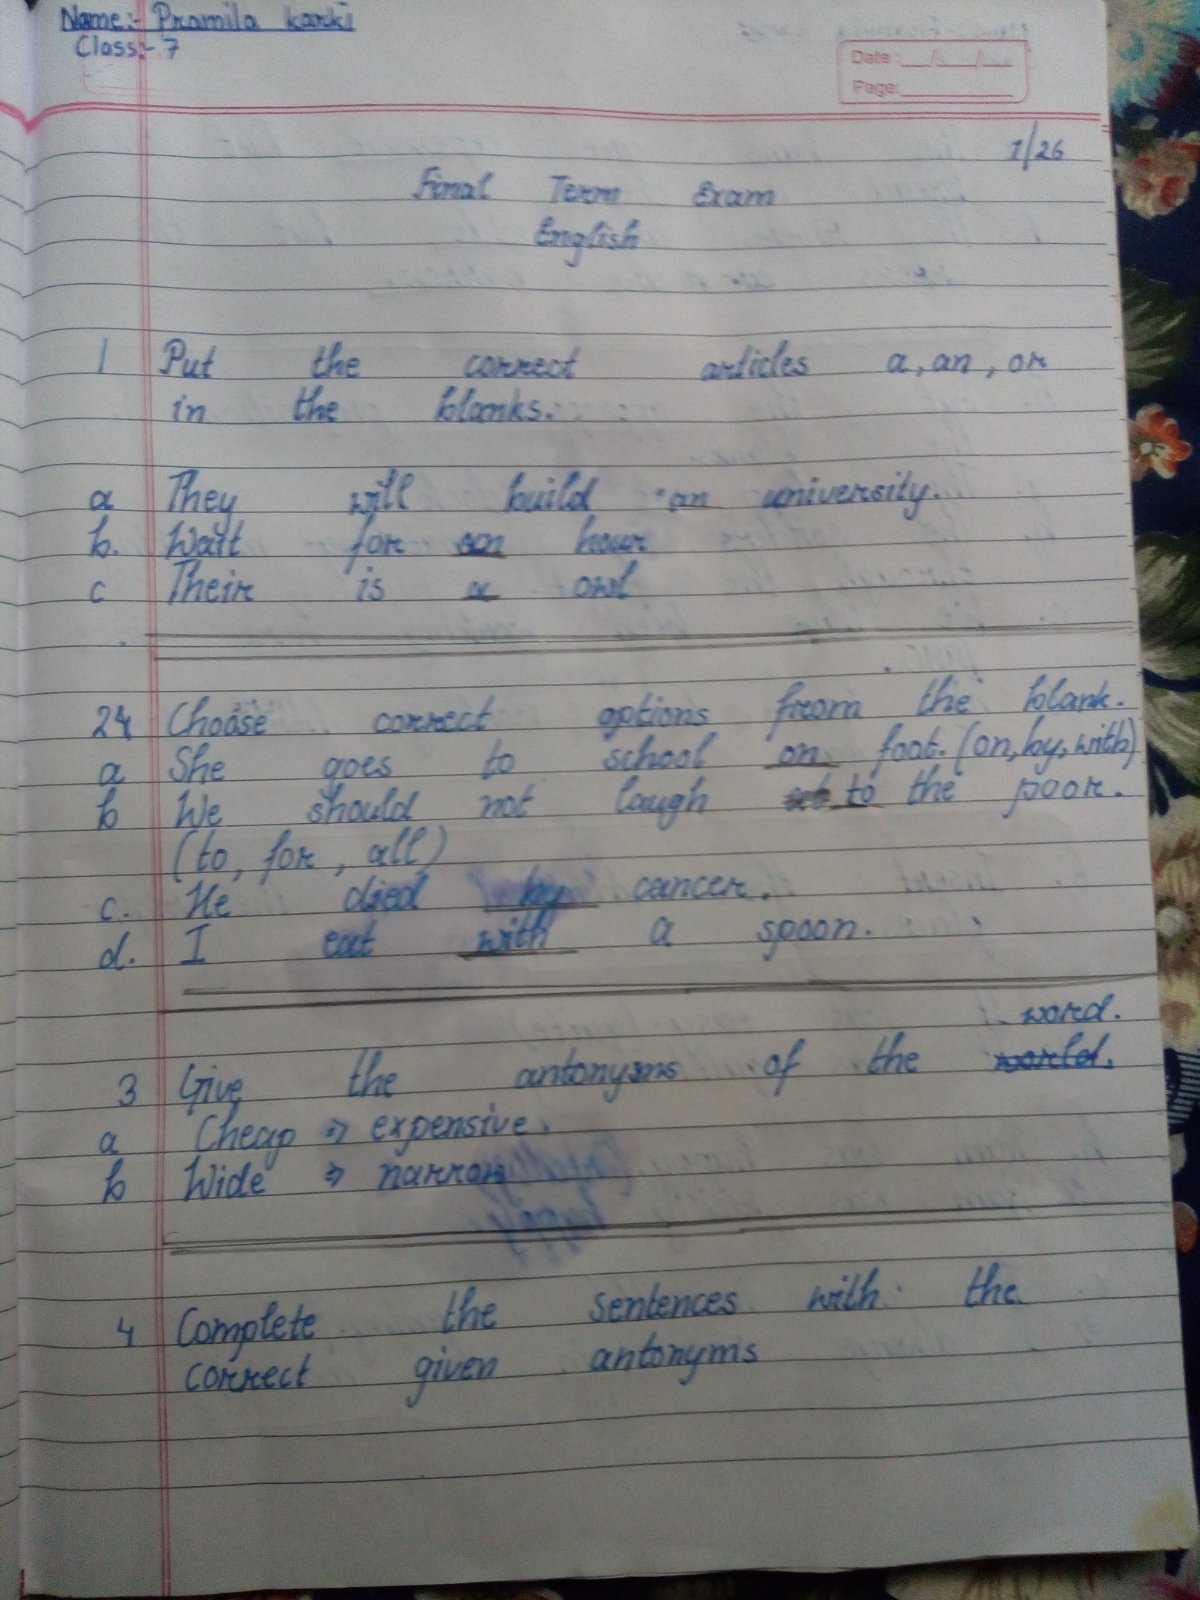 Name:- Pramila karki
Class:- 7
Date:__/__/__
Page:
1/26
Final Term Exam
English
1 Put the correct articles a, an, or
in the blanks.
a They will build an university.
b. Wait for an hour
c Their is a owl
24 Choose correct options from the blank.
a She goes to school on foot. (on, by, with)
b We should not laugh to the poor.
(to, for, all)
c. He died by cancer.
d. I eat with a spoon.
word.
3 Give the antonyms of the world.
a Cheap ⇒ expensive.
b Wide ⇒ narrow
4 Complete the sentences with the
correct given antonyms